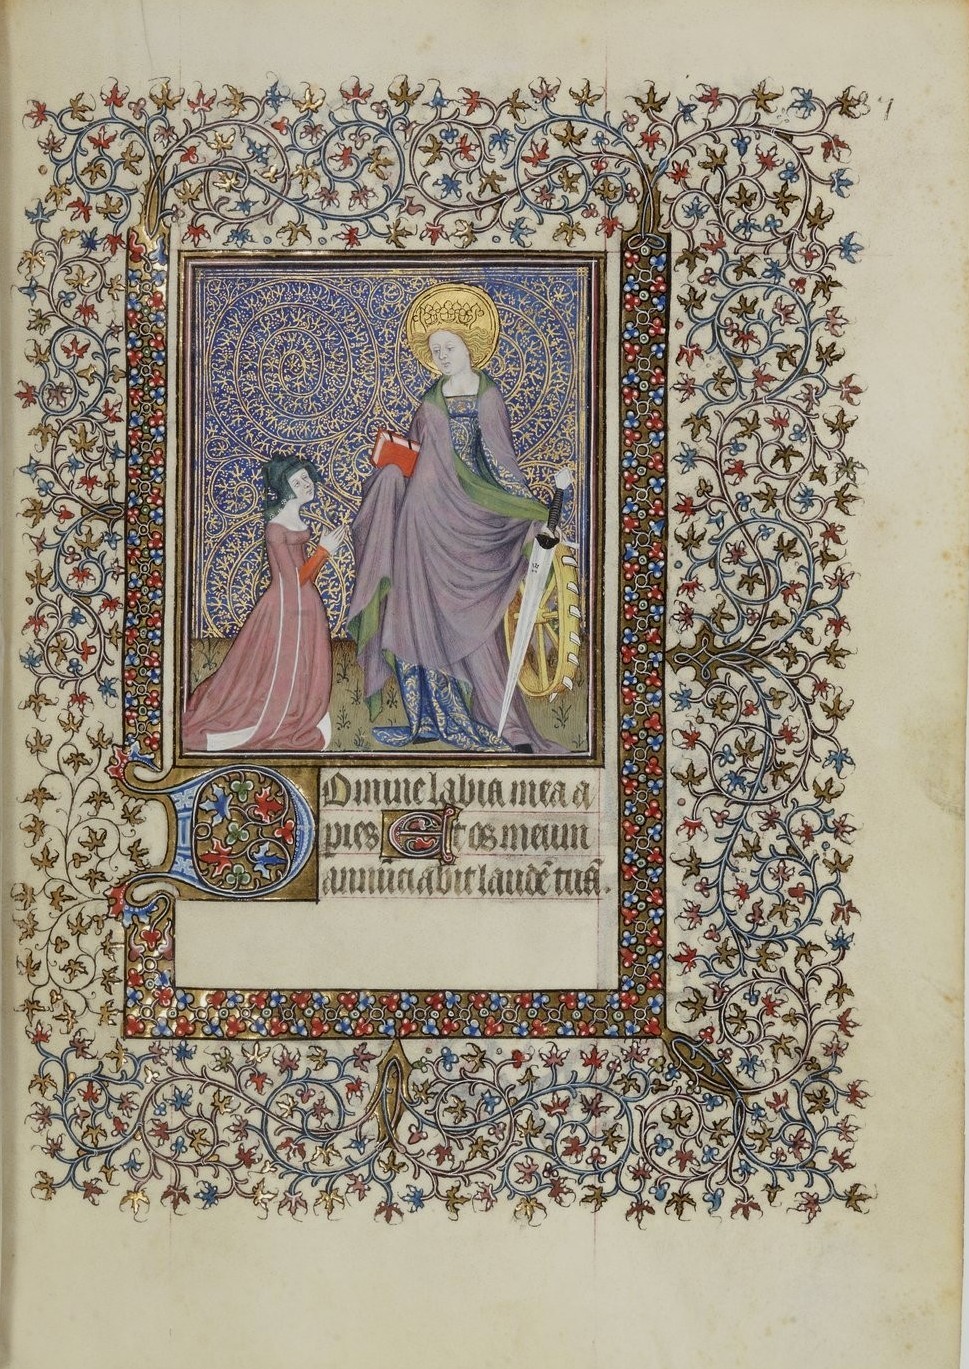 Domine labia mea a
pies Et os meum
annuntiabit laudē tuā.